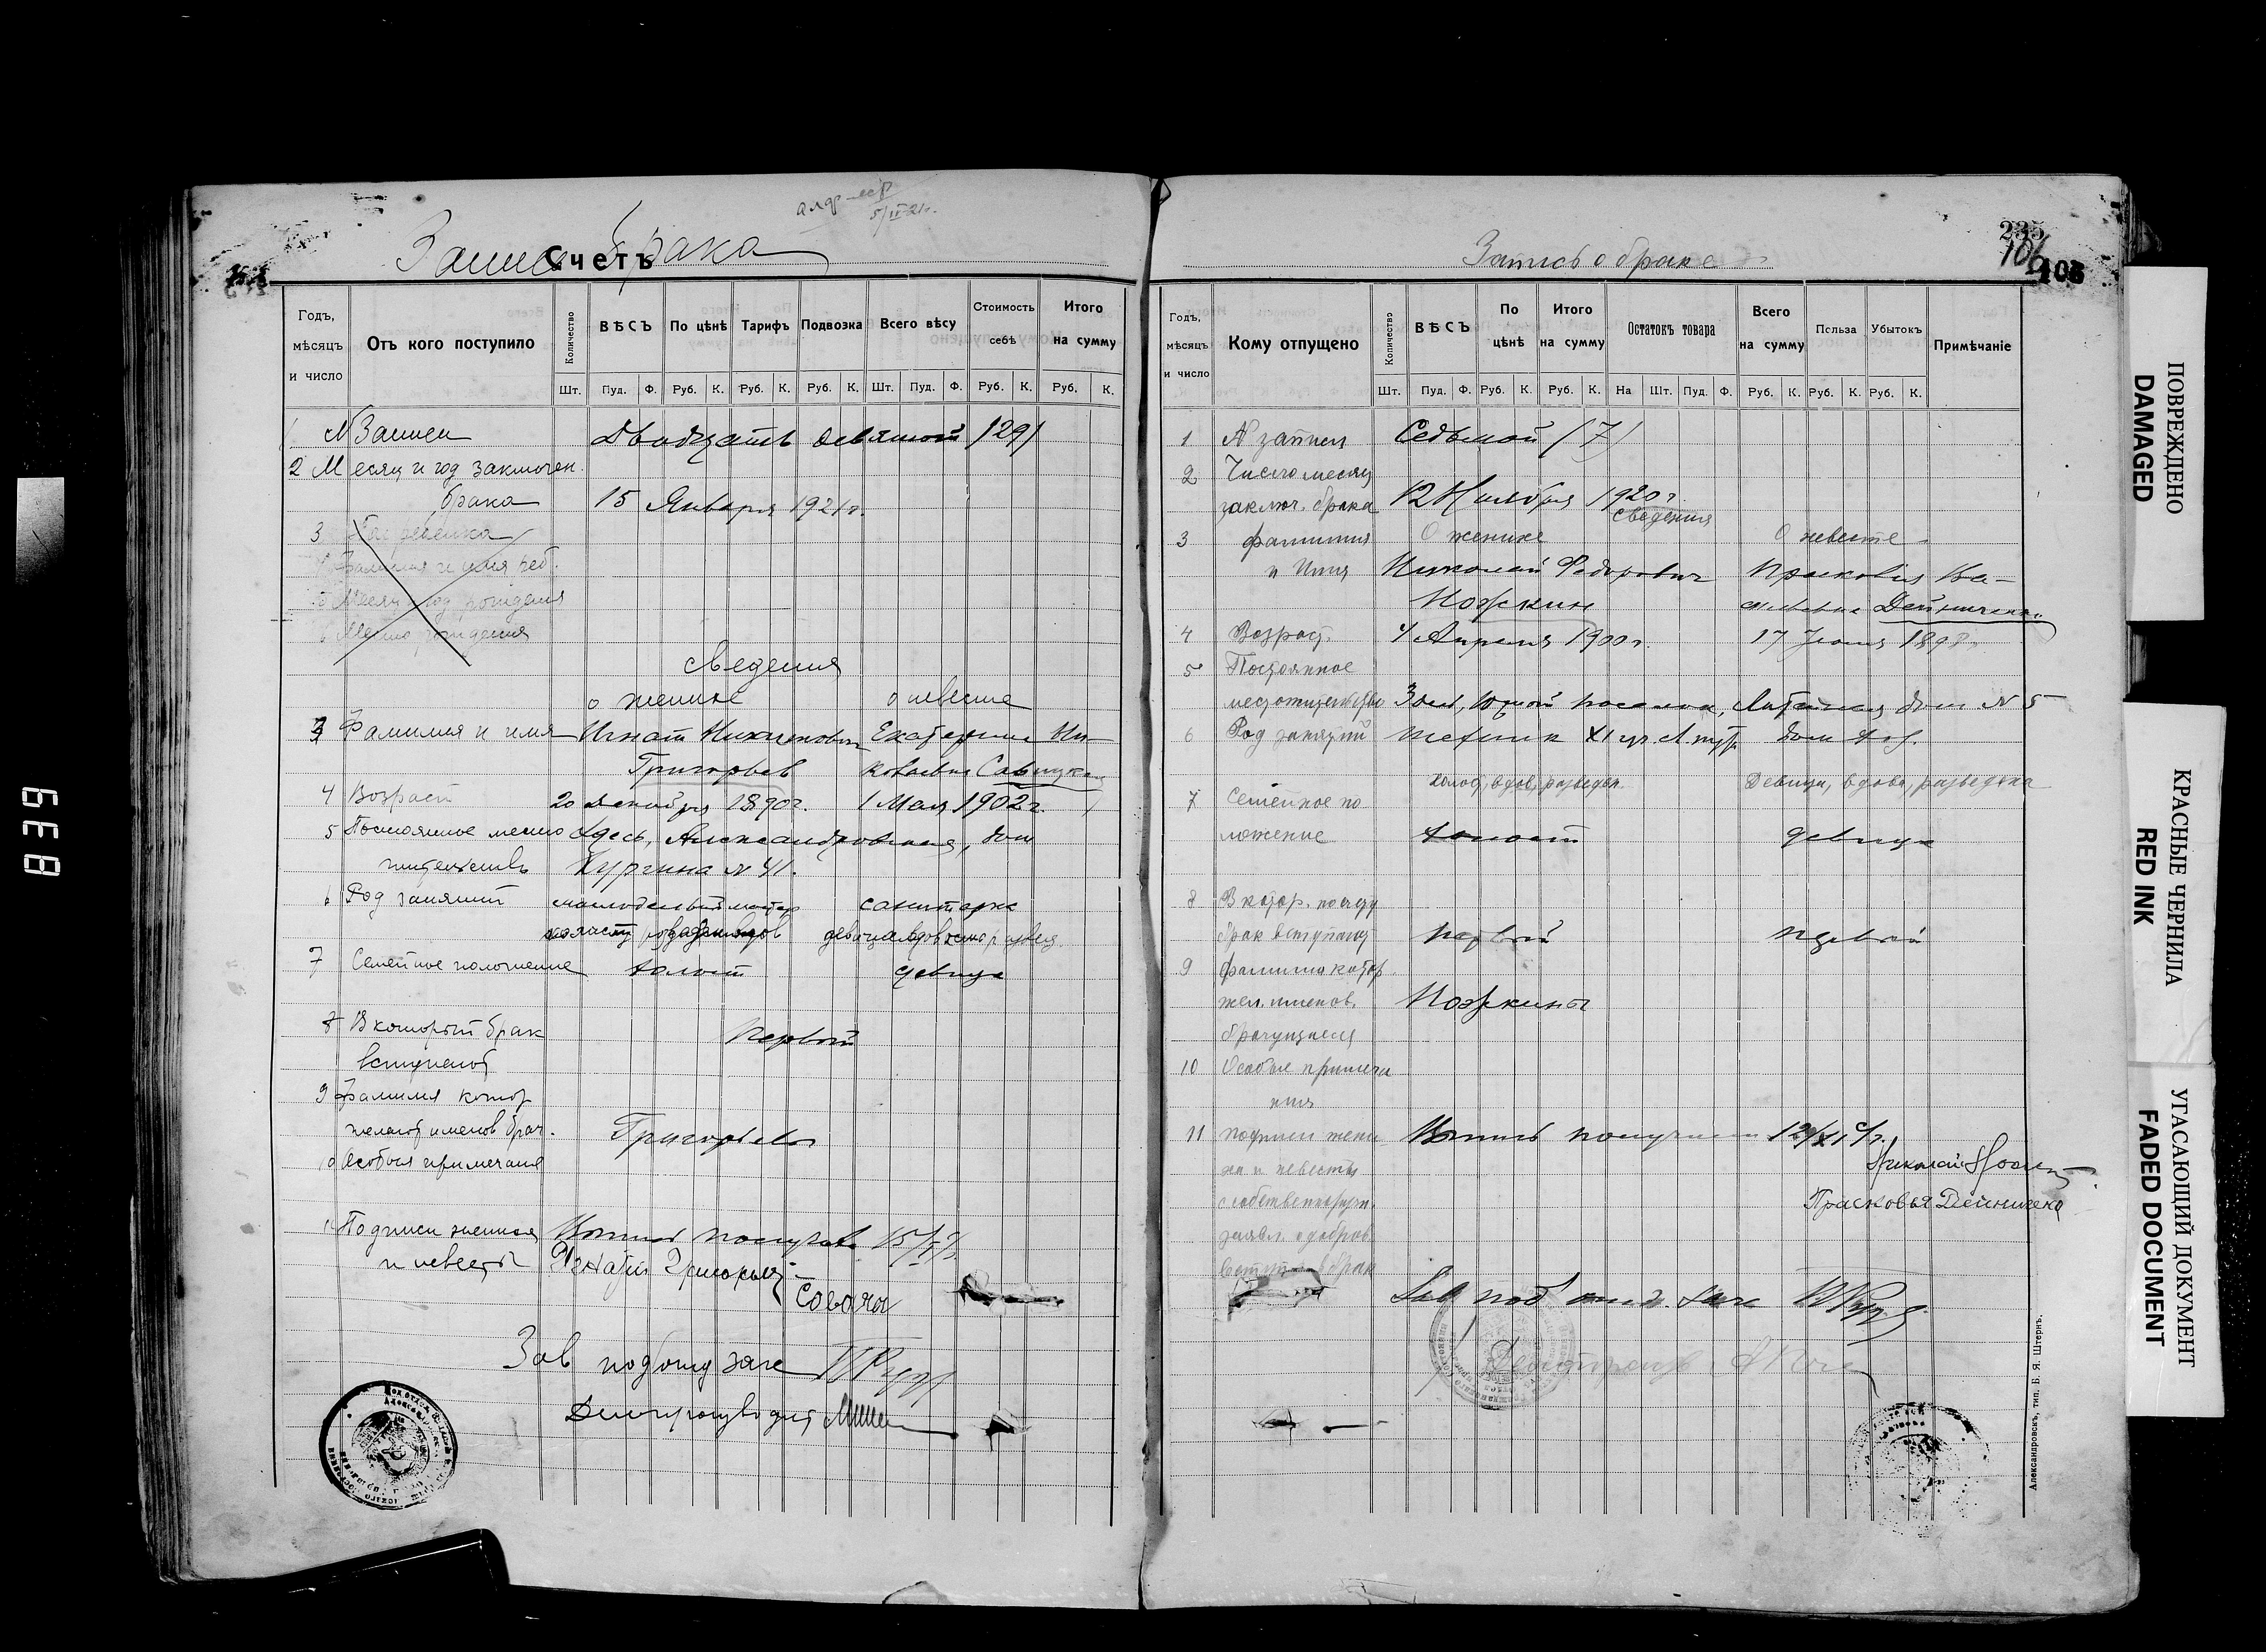 Запись брака
Счетъ
Годъ, мѣсяцъ и число
Отъ кого поступило
Количество
ВѢСЪ
По цѣнѣ
Тарифъ
Подвозка
Всего вѣсу
Стоимость себѣ
Итого на сумму
Шт. Пуд. Ф. Руб. К. Руб. К. Руб. К. Шт. Пуд. Ф. Руб. К. Руб. К.
1 № Записи Двадцать девятый /29/
2 Месяц и год заключен.
брака 15 Января 1921 г.
3 Пол ребенка
Фамилия и имя реб.
5 Месяц и год рождения
6 Место рождения
сведения
о женихе о невесте
3 Фамилия и имя Игнат Никитович Екатерина Ни-
Григорьев колаевна Савицкая
4 Возраст 20 Декабря 1890 г. 1 Мая 1902 г.
5 Постоянное место Здесь, Александровская, дом
жительств № 41.
6 Род занятий санитарка
7 Семейное положение холост девица
8 В который брак Первый
вступают
9 Фамилия котор
желают именов брач. Григорьевы
10 Особыя примечания
11 Подписи жениха Копию получив 15/I
и невесты Игнатий
Зав подотд загс
Делопроизводит
235
106
106
Запись о браке
Годъ, мѣсяцъ и число
Кому отпущено
Количество
ВѢСЪ
По цѣнѣ
Итого на сумму
Остатокъ товара
Всего на сумму
Польза
Убытокъ
Примѣчаніе
Шт. Пуд. Ф. Руб. К. Руб. К. На Шт. Пуд. Ф. Руб. К. Руб. К. Руб. К.
1 № записи Седьмой (7)
2 Число месяц
заключ. брака 12 Ноября 1920 г.
Сведения
3 фамилия О женихе О невесте
и Имя Николай Федорович Прасковья Ва-
Ножкин сильевна Дейниченко
4 Возраст. 4 Апреля 1900 г. 17 Июня 1898
5 Постоянное
местожительство Здесь, Южный поселок, дом № 5
6 Род занятий
холост, вдов, разведен Девица, вдова, разведена
7 Семейное по
ложение холост девица
8 В котор. по счету
брак вступают первый первый
9 фамилия котор.
жел. именов. Ножкины
брачущиеся
10 Особые примеча
ния
11 подписи жени Копию получили 12/XI с/г.
ха и невесты Николай
с собственноручн. Прасковья Дейниченко
заявл. о добров.
вступл. в брак
Зав под отд. загс
Делопроизв.
Александровскъ, тип. Б. Я. Штернъ.
ПОВРЕЖДЕНО
DAMAGED
КРАСНЫЕ ЧЕРНИЛА
RED INK
УГАСАЮЩИЙ ДОКУМЕНТ
FADED DOCUMENT
839